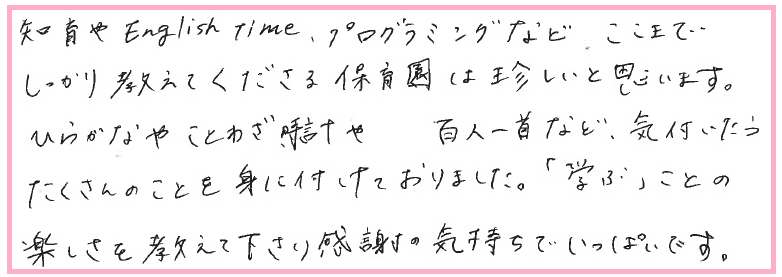 知育やEnglish time、プログラミングなど ここまで…
しっかり教えてくださる保育園は珍しいと思います。
ひらがなやことわざ 時計や 百人一首など、気付いたら
たくさんのことを身に付けておりました。「学ぶ」ことの
楽しさを教えて下さり感謝の気持ちでいっぱいです。